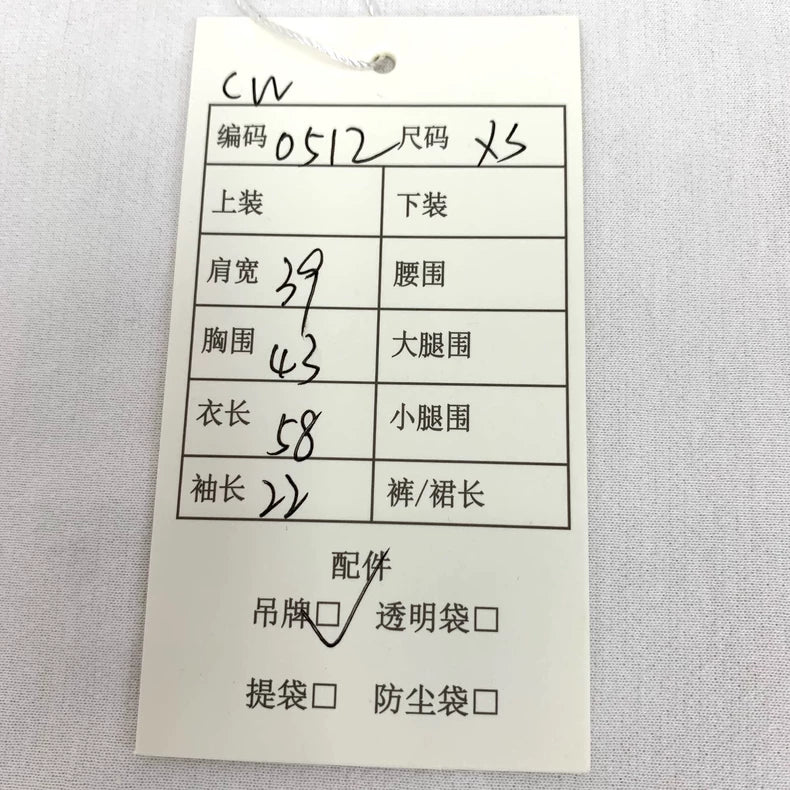 CW
编码 0512 尺码 XS
上装 下装
肩宽 39 腰围
胸围 43 大腿围
衣长 58 小腿围
袖长 22 裤/裙长
配件
吊牌□ 透明袋□
提袋□ 防尘袋□